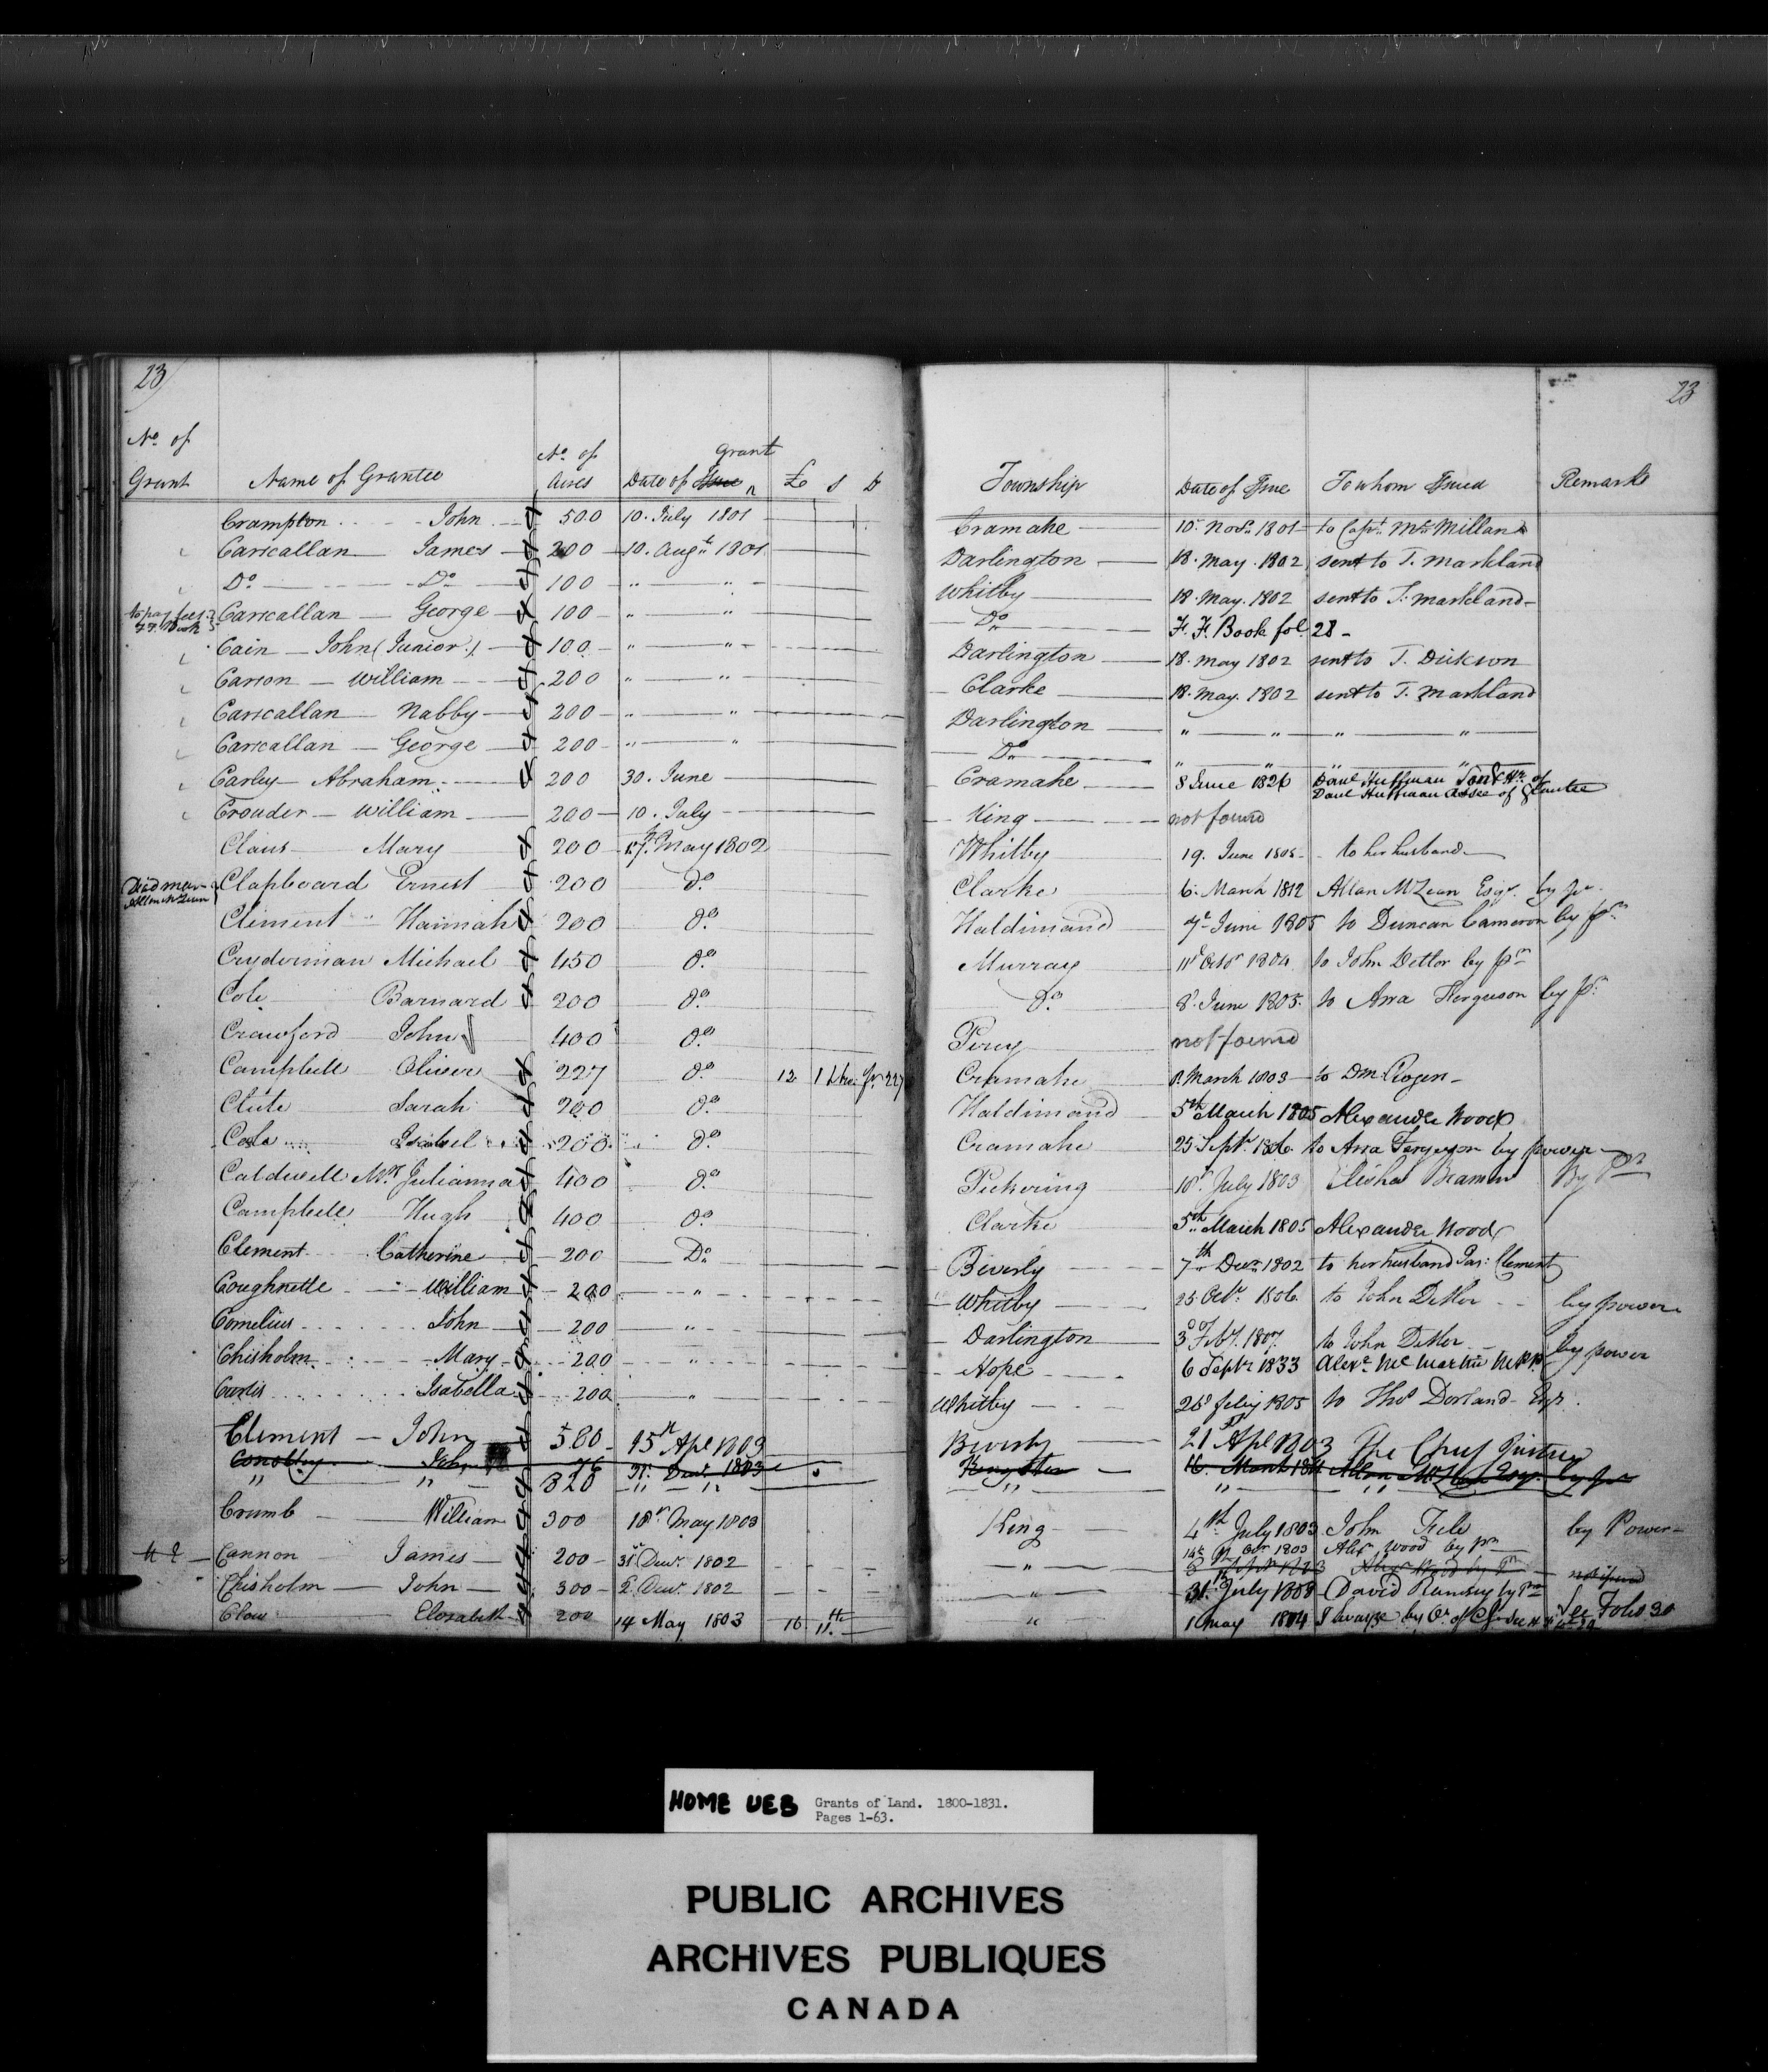 23
23
No. of Grant Name of Grantee No. of Acres Date of grant £ s D Township Date of Issue To whom Issued Remarks
Crampton John 500 10. July 1801 Cramahe 10th Novr. 1801 to Capt. McMillan
Carscallan James 200 10. Augt. 1801 Darlington 18. May. 1802 sent to T. Markland
Do Do 100 " " Whitby 18. May. 1802 sent to T. Markland
to pay fees Carscallan George 100 " " Do F. F. Book fol. 28
Cain John (Junior) 100 " " Darlington 18. May 1802 sent to T. Dickson
Carson William 200 " " Clarke 18. May. 1802 sent to T. Markland
Carscallan Nabby 200 " " Darlington " " " "
Carscallan George 200 " " Do " " " "
Carley Abraham 200 30. June Cramahe 8 June 1826 Paul Huffman Son & Hr. of Paul Huffman Assee of Grantee
Crouder William 200 10. July King not found
Claus Mary 200 17. May 1802 Whitby 19. June 1805 to her husband
Clapboard Ernest 200 do. Clarke 6. March 1812 Allan McLean Esqr. by pr.
Clement Hannah 200 do. Haldimand 7th June 1805 to Duncan Cameron by pr.
Cryderman Michael 450 do. Murray 11 Octor 1804 to John Detlor by pr.
Cole Barnard 200 do. do. 8. June 1805. to Arra Ferguson by pr.
Crawford John 400 do. Percy not found
Campbell Oliver 227 do. 12 1 Cramahe 8. March 1803 to Dm. Rogers
Clute Sarah 200 do. Haldimand 5th March 1805 Alexander Wood
Cole Isabel 200 do. Cramahe 25 Septr. 1806 to Arra Ferguson by power
Caldwell Mrs. Julianna 400 do. Pickering 10th July 1803 Elisha Beaman By Pr
Campbell Hugh 400 do. Clarke 5th March 1805 Alexander Wood
Clement Catherine 200 Do Beverly 7th Decr 1802 to her husband Jas: Clement
Coughnette William 200 " Whitby 25 Octr. 1806 to John Detlor by power
Cornelius John 200 " Darlington 3 Feby. 1807 to John Detlor by power
Chisholm Mary 200 " Hope 6 Septr 1833 Alexr. McMartin
Curtis Isabella 200 " Whitby 28 feby 1805 to Thos Dorland Esqr.
Clement John 580 15th Apl 1803 Beverly 21st Apl 1803 The Chief Justice
Conolley John 76 31. Decr. 1803 Kingston 16. March 1811 Allan McLean Esqr. by pr
" " 328 " " " " "
Crumb William 300 18th May 1803 King 4th July 1803 John by Power
Cannon James 200 31st Decr. 1802 " 14th Octr 1803 Alexr Wood by pr
Chisholm John 300 2. Decr. 1802 " 31st July 1803 David Ramsay by Pr
Claus Elizabeth 200 14 May 1803 16 11 " 1 May 1804 Swayze by Or. of See Folio 30
HOME UEB Grants of Land. 1800-1831.
Pages 1-63.
PUBLIC ARCHIVES
ARCHIVES PUBLIQUES
CANADA